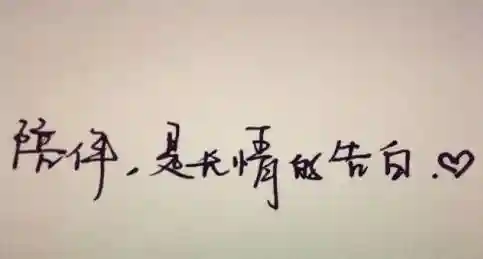 陪伴,是长情的告白.♡